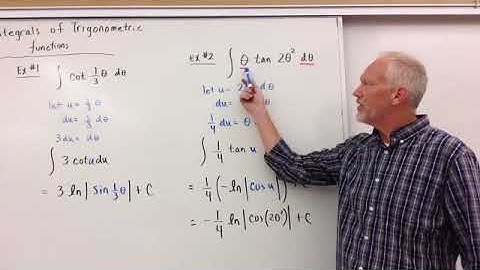 Integrals of Trigonometric
functions
Ex #1
∫ cot 1/3 θ dθ
let u = 1/3 θ
du = 1/3 dθ
3 du = dθ
∫ 3 cot u du
= 3 ln|sin 1/3 θ| + C
Ex #2
∫ θ tan 2θ² dθ
let u = 2 dθ
du = dθ
1/4 du = θ
∫ 1/4 tan u
= 1/4 (-ln|cos u|) + C
= -1/4 ln|cos(2θ²)| + C